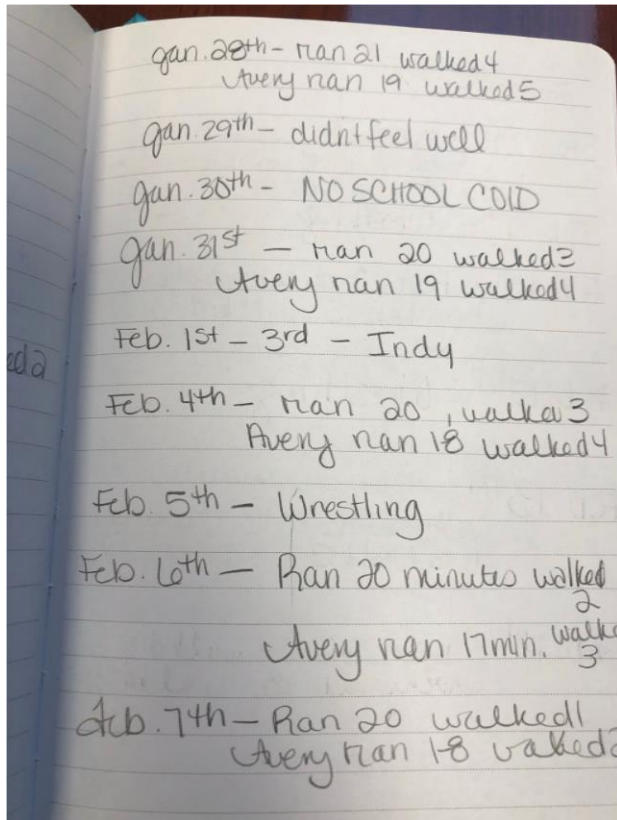 Jan. 28th - ran 21 walked 4
Avery ran 19 walked 5
Jan. 29th - didn't feel well
Jan. 30th - NO SCHOOL COLD
Jan. 31st - ran 20 walked 3
Avery ran 19 walked 4
Feb. 1st - 3rd - Indy
Feb. 4th - ran 20, walked 3
Avery ran 18 walked 4
Feb. 5th - Wrestling
Feb. 6th - Ran 20 minutes walked
2
Avery ran 17 min.
3
Feb. 7th - Ran 20 walked 1
Avery ran 18 walked